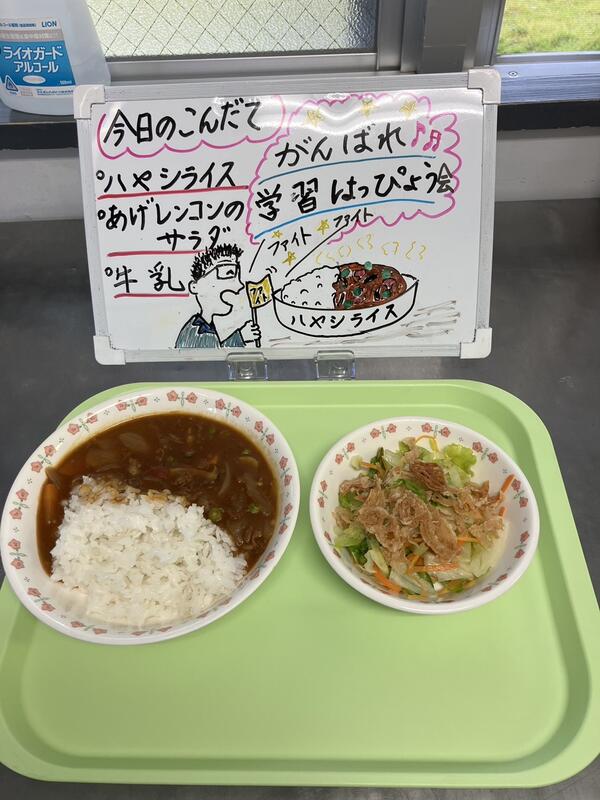 LION
ライオガード
アルコール
今日のこんだて
°ハヤシライス
°あげレンコンの
サラダ
°牛乳
がんばれ♪♫
学習はっぴょう会
ファイト
ファイト
ハヤシライス